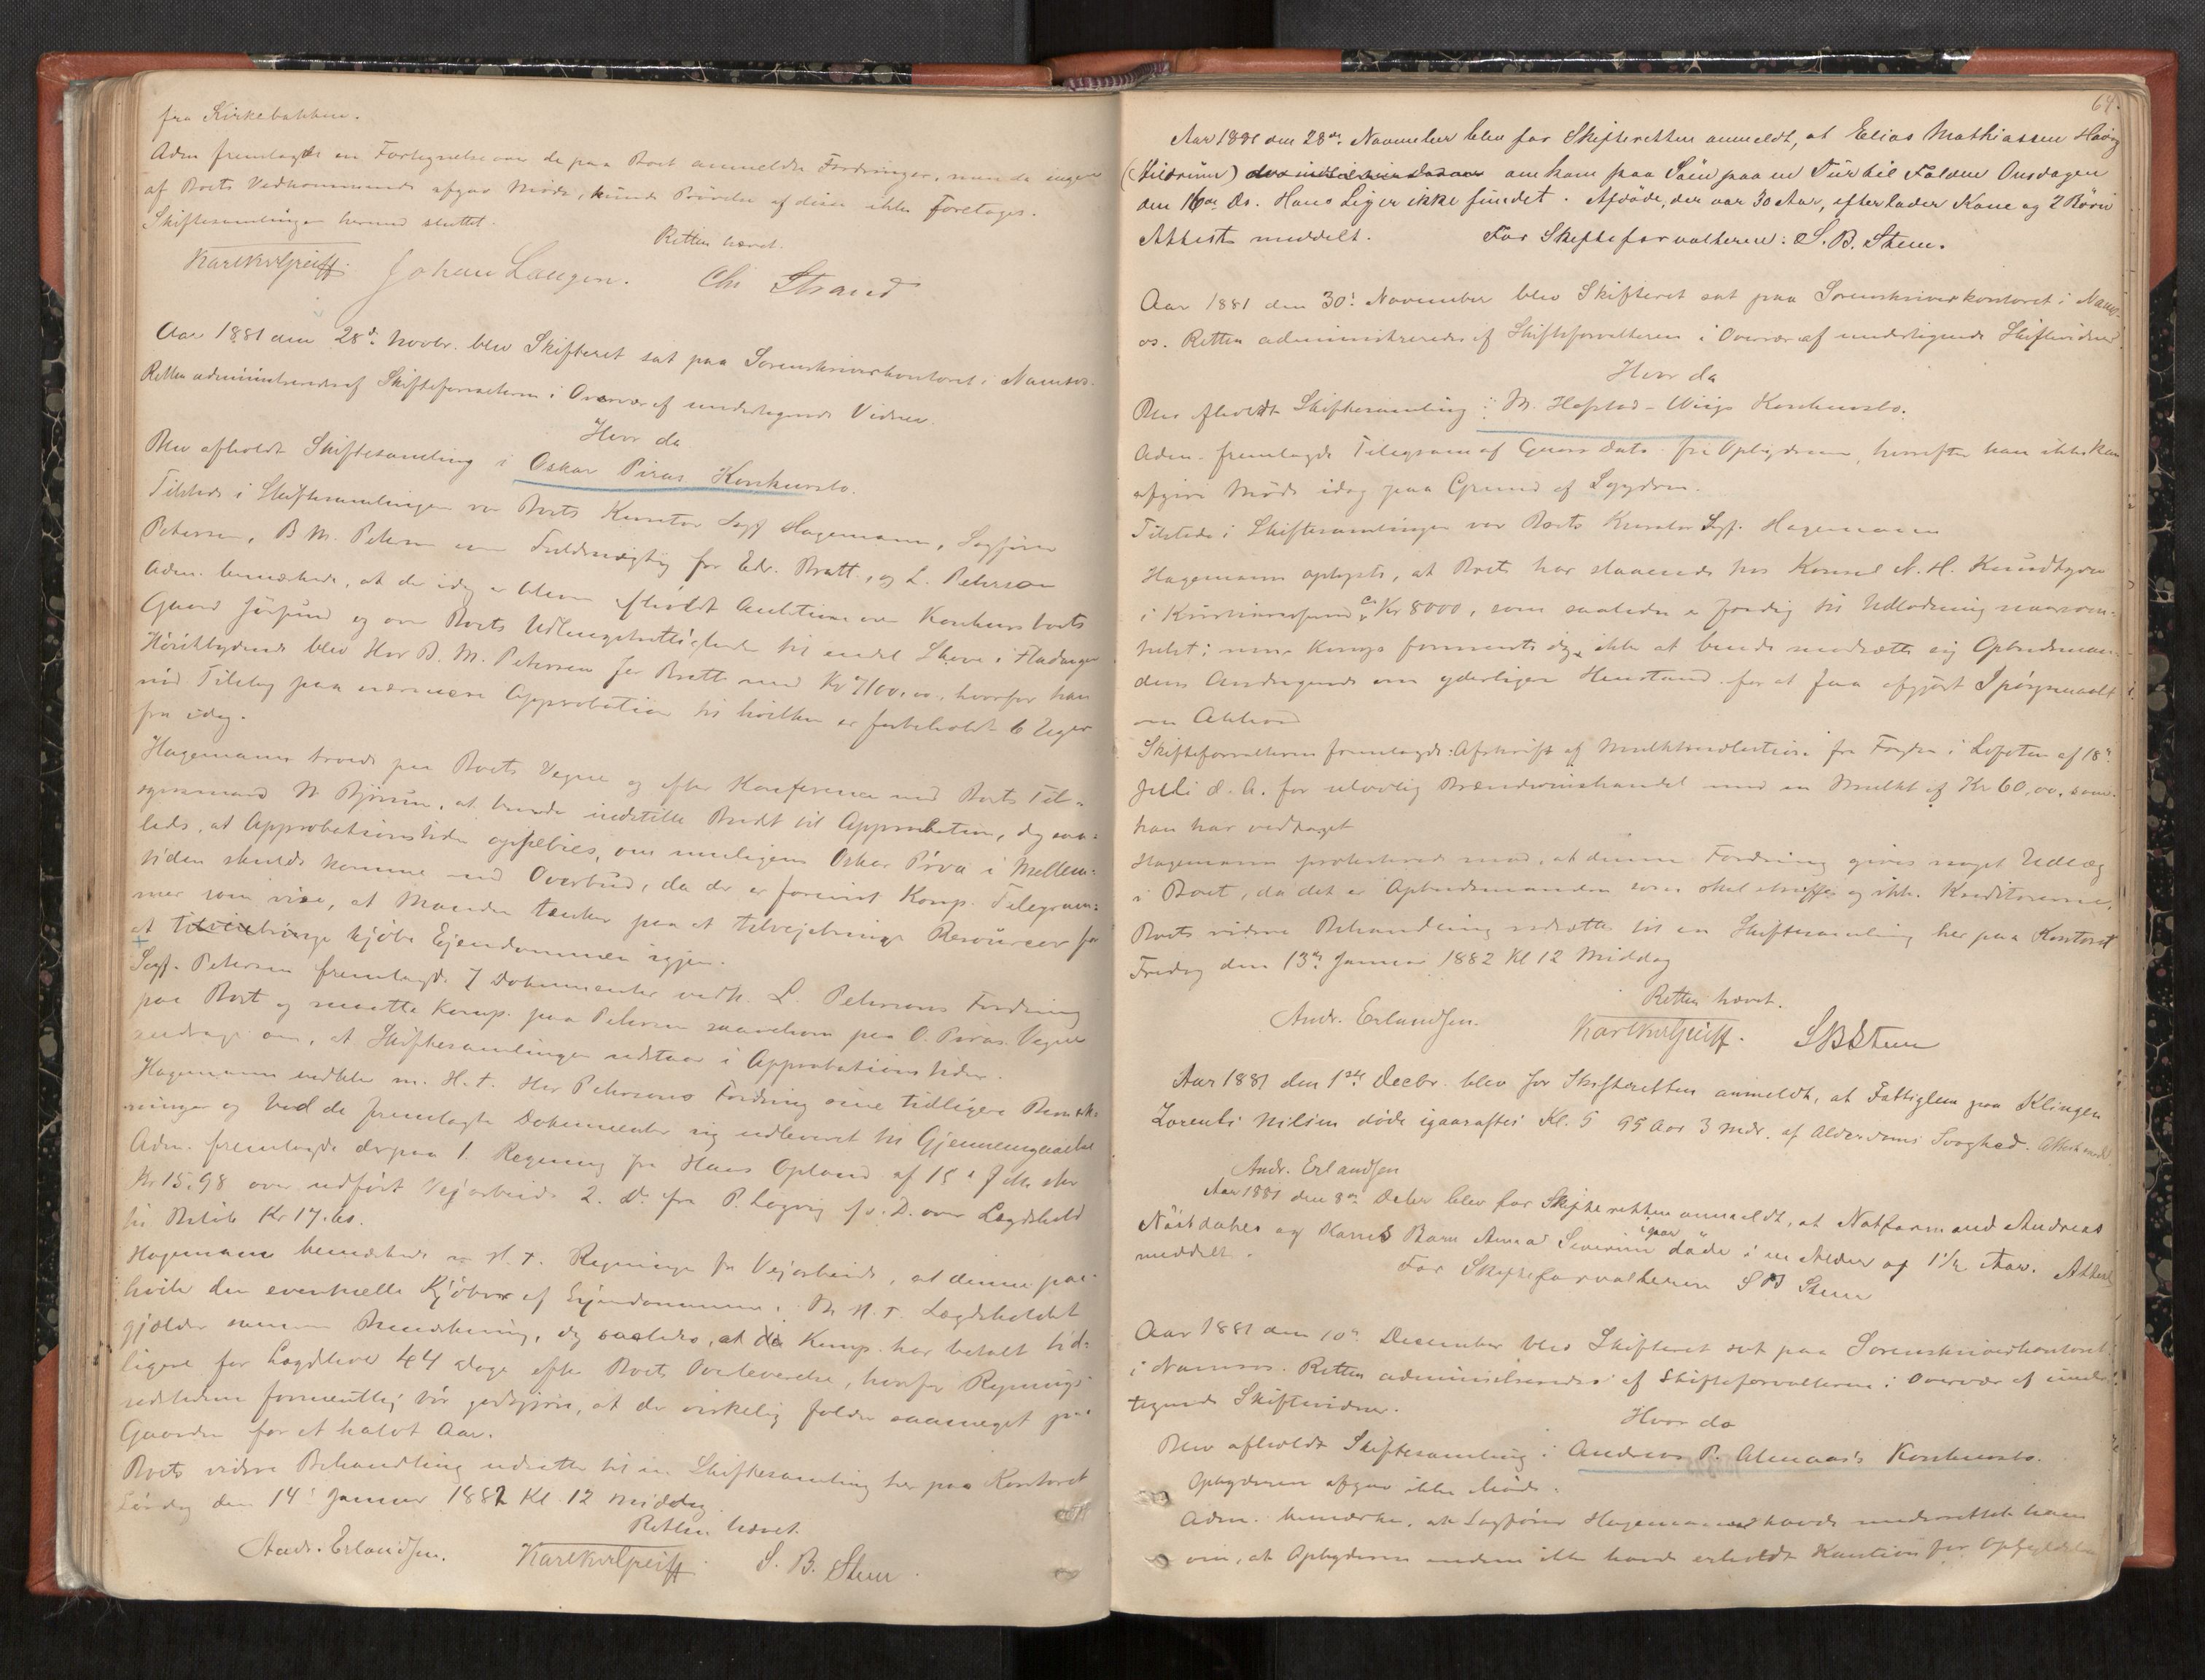 fra Kirkebakken.
Adm fremlagde en Fortegnelse over de paa Boet anmeldte Fordringer, men da ingen
af Boets Vedkommende afgav Møde, kunde Prøvelse af disse ikke foretages.
Skiftesamlingen hermed sluttet.
Retten hævet.
Johan Laugen. Chr Strand
Aar 1881 den 28de Novbr. blev Skifteret sat paa Sorenskriverkontoret i Namsos.
Retten administreredes af Skifteforvalteren i Overvær af undertegnede Vidner.
Hvor da
Blev afholdt Skiftesamling i Oskar Piras Konkursbo.
Tilstede i Skiftesamlingen var Boets Kurator Sagf Hagemann, Sagfører
Petersen, B. M. Petersen som Fuldmægtig for Edv. Bratt, og L. Peterson
Adm. bemærkede, at der idag er bleven afholdt Auktion over Konkursboets
Gaard og over Boets til endel Skove i
Høistbydende blev Hr B. M. Petersen for Bratt med Kr 7100,00, hvorfor han
Tilslag paa nærmere Approbation til hvilken er forbeholdt 6 Uger
fra idag.
Hagemann troede paa Boets Vegne og efter Konference med Boets Til-
synsmand N Bjørum, at burde indstille Budet til Approbation, dog saa-
ledes, at Approbationstiden oppebies, om muligens Oskar Pira i Mellem-
tiden skulde komme med Overbud, da der er forevist Komp. Telegram-
mer som vise, at Manden tænker paa at tilvejebringe Resourcer for
at kjøbe Ejendommen igjen.
Sagf. Petersen fremlagde 7 Dokumenter vedk. L. Petersons Fordring
paa Boet og maatte Komp. paa Peterson saavelsom paa O. Piras Vegne
andrage om, at Skiftesamlingen udstaar i Approbationstiden.
Hagemann m. H. t. Her Petersons Fordring sine tidligere Bemærk-
ninger og bad de fremlagte Dokumenter sig udleveret til Gjennemgaaelse
Adm. fremlagde derpaa 1. Regning fra Hans Opland af 15de f. M. stor
Kr 15,98 over udført Vejarbeide 2. Do fra P. Lagvig f. D. over Lægdehold
til Beløb Kr 17.60.
Hagemann bemærkede m. H. t. Regningen for Vejarbeide, at denne paa-
hviler den eventuelle Kjøber af Ejendommen. M. H. t. Lægdeholdet
gjælder samme Bemærkning, dog saaledes, at da Komp. har betalt tid-
ligere for Lægdelever 44 dage efter Boets Overleverelse, hvorfor Regnings-
udstederen formentlig bør godtgjøre, at der virkelig falder saameget paa
Gaarden for et halvt Aar.
Boets videre Behandling udsættes til en Skiftesamling her paa Kontoret
Lørdag den 14de Januar 1882 Kl. 12 Middag.
Retten hævet.
Andr. Erlandsen. S. B. Steen
64.
Aar 1881 den 28de November blev for Skifteretten anmeldt, at Elias Mathiassen
omkom paa Søen paa en Tur til Folden Onsdagen
den 16de ds. Hans Lig er ikke fundet. Afdøde, der var 30 Aar, efterlader Kone og 2 Børn
Attest meddelt. For Skifteforvalteren: S. B. Steen.
Aar 1881 den 30te November blev Skifteret sat paa Sorenskriverkontoret i Nams-
os. Retten administreredes af Skifteforvalteren i Overvær af undertegnede Skiftevidner
Hvor da
Blev afholdt Skiftesamling i M. Hafstad-Wiigs Konkursbo.
Adm. fremlagde Telegram af Gaars Dato fra Opbyderen, hvorefter han ikke kan
afgive Møde idag paa Grund af Sygdom.
Tilstede i Skiftesamlingen var Boets Kurator Sagf. Hagemann
Hagemann oplyste, at Boet har staaende hos Konsul N. H. Knudtzon
i Kristianssund ca Kr 8000, som saaledes er færdig til Udlodning naarsom-
helst; men Komp formente dog ikke at burde modsætte sig Opbudsman-
dens Andragende om yderligere Henstand for at faa afgjort Spørgsmaalet
om Akkord
Skifteforvalteren fremlagde Afskrift af Mulktresolution fra Fogden i Lofoten af 18de
Juli d. A. for ulovlig Brændevinshandel med en Mulkt af Kr 60,00, som
han har vedtaget
Hagemann protesterede mod, at denne Fordring gives noget Udlæg
i Boet, da det er Opbudsmanden som skal straffes og ikke Kreditorerne.
Boets videre Behandling udsættes til en Skiftesamling her paa Kontoret
Fredag den 13de Januar 1882 Kl 12 Middag
Retten hævet.
Andr. Erlandsen. SBSteen
Aar 1881 den 1ste Decbr. blev for Skifteretten anmeldt, at Fattiglem paa Klingen
Lorents Nilsen døde igaaraftes Kl. 5 95 Aar 3 Mdr. af Alderdoms Svaghed. Attest medd.
Andr. Erlandsen
Aar 1881 den 8de Decbr blev for Skifteretten anmeldt, at Notformand Andreas
og Kones Barn Anna Severine igaar døde i en Alder af 1½ Aar. Attest
meddelt. For Skifteforvalteren S B Steen
Aar 1881 den 10de December blev Skifteret sat paa Sorenskriverkontoret
i Namsos. Retten administreredes af Skifteforvalteren i Overvær af under-
tegnede Skiftevidner.
Hvor da
Blev afholdt Skiftesamling i Andreas P. Almaas's Konkursbo.
Opbyderen afgav ikke Møde.
Adm. bemærkede, at Sagfører Hagemann havde underrettet ham
om, at Opbyderen endnu ikke havde erholdt Kaution for Opfyldelsen